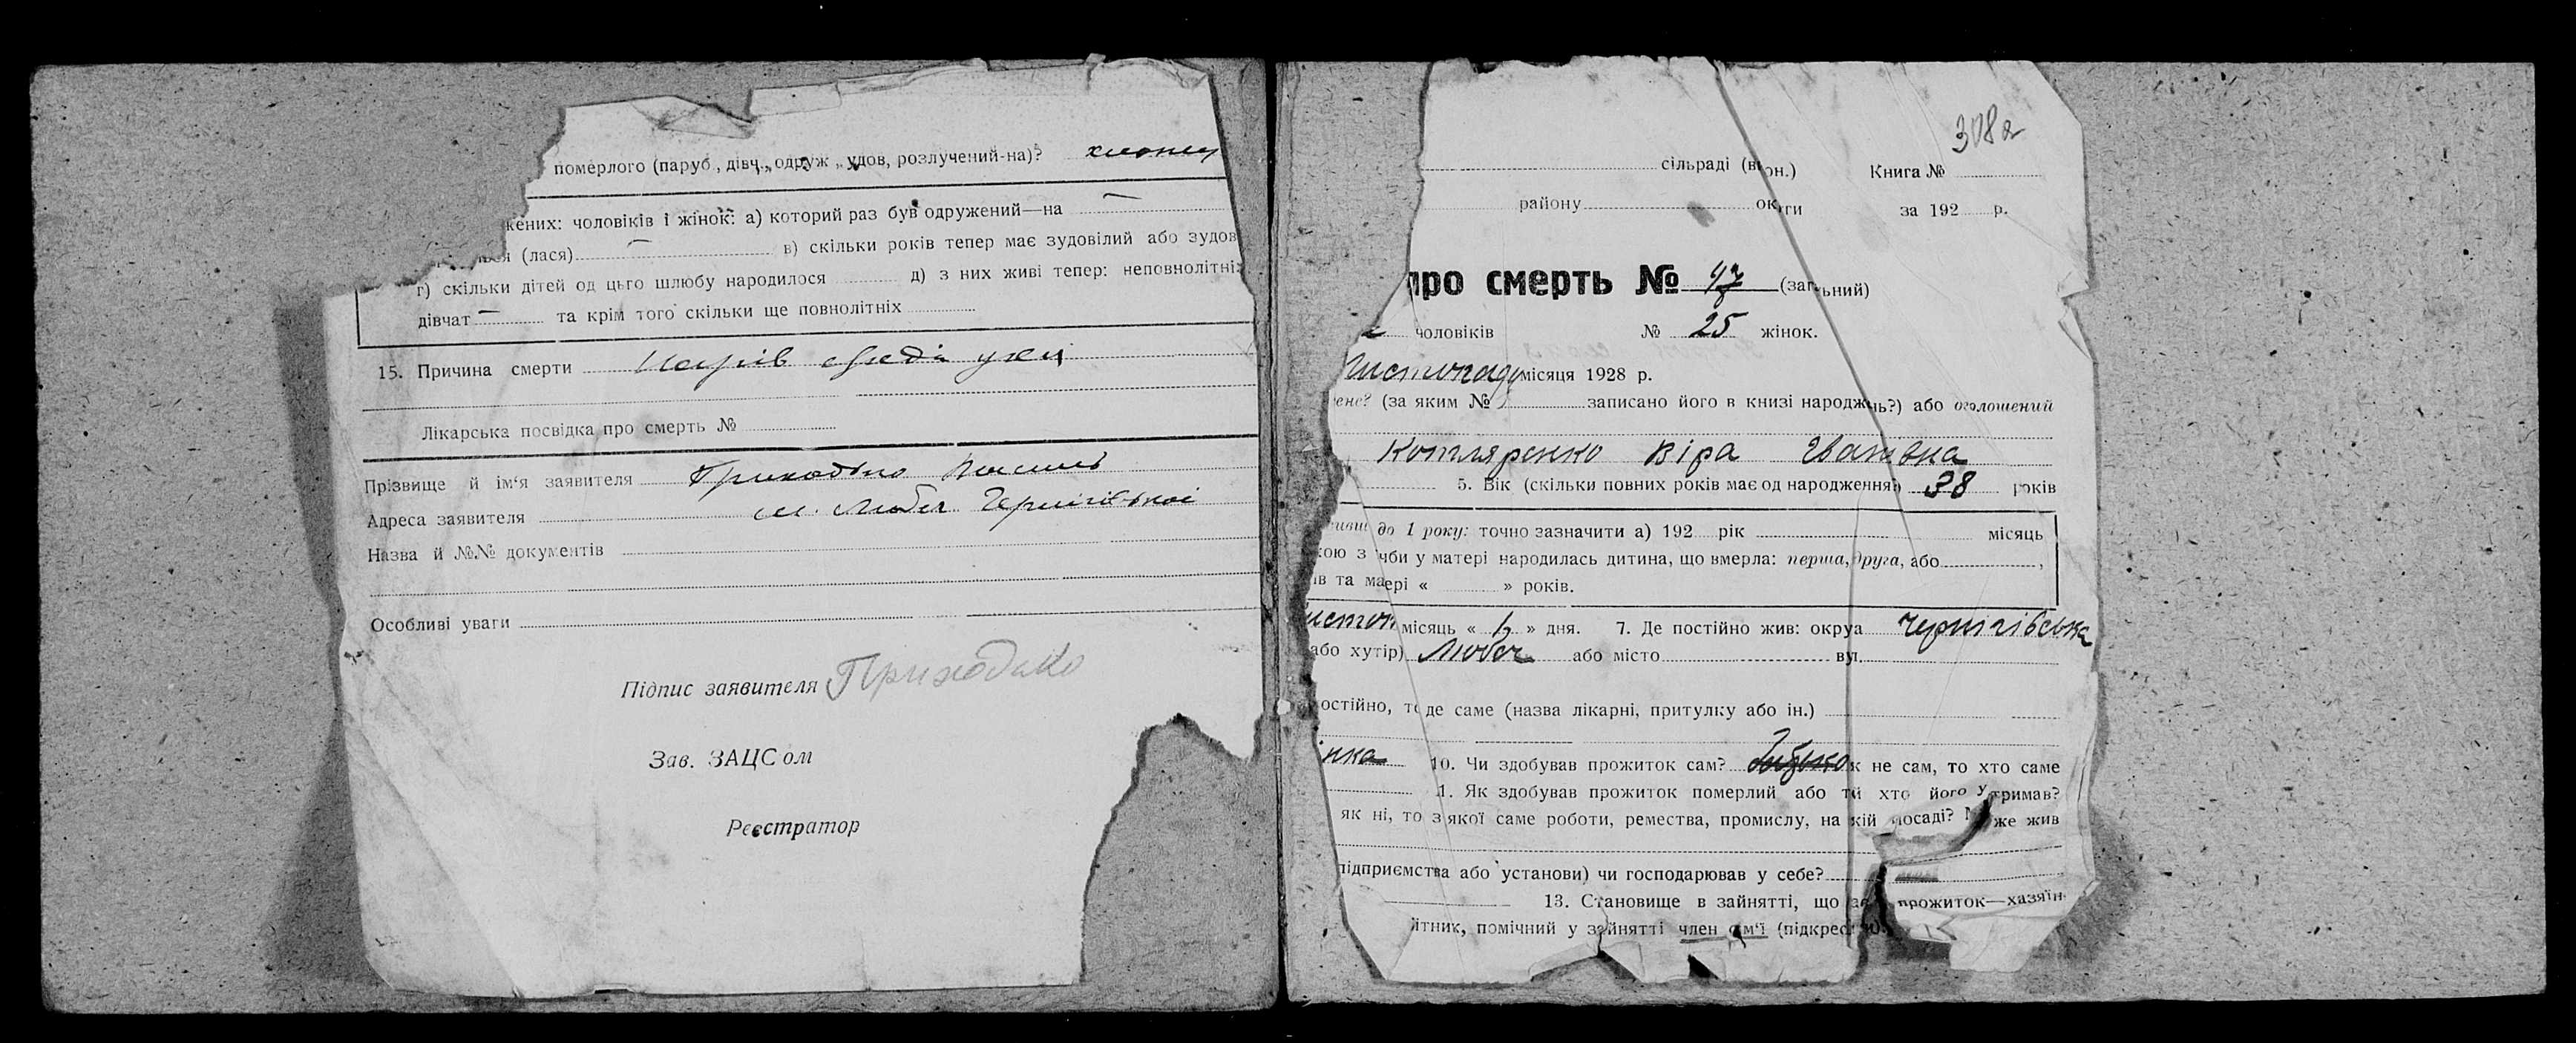 померлого (паруб., дівч., одруж., удов, розлучений-на)? хлопец
жених: чоловіків і жінок: а) которий раз був одружений—на
(лася) в) скільки років тепер має зудовілий або зудов
г) скільки дітей од цього шлюбу народилося д) з них живі тепер: неповнолітніх
дівчат — та крім того скільки ще повнолітніх
15. Причина смерти Нарів
Лікарська посвідка про смерть №
Прізвище й ім'я заявителя Приходько
Адреса заявителя м. Любеч Чернігівської
Назва й №№ документів
Особливі уваги
Підпис заявителя Приходько
Зав. ЗАЦСом
Реєстратор
308а
сільраді (в он.) Книга №
району ок ги за 192 р.
про смерть № 47 (заг ьний)
чоловіків № 25 жінок.
Листопаду місяця 1928 р.
ене? (за яким № записано його в книзі народжнь?) або оголошений
Котляренко Віра Іванівна
5. Вік (скільки повних років має од народження?) 38 років
до 1 року: точно зазначити а) 192 рік місяць
кою з чби у матері народилась дитина, що вмерла: перша, друга, або ,
ів та матері « » років.
истоп місяць « » дня. 7. Де постійно жив: окруа Чернігівська
або хутір) Любеч або місто вул.
остійно, то де саме (назва лікарні, притулку або ін.)
інка 10. Чи здобував прожиток сам? к не сам, то хто саме
1. Як здобував прожиток померлий або той хто його утримав?
як ні, то з якої саме роботи, ремества, промислу, на кій посаді? же жив
підприємства або установи) чи господарював у себе?
13. Становище в зайнятті, що прожиток—хазяїн-
ітник, помічний у зайнятті член сім'ї (підкрес